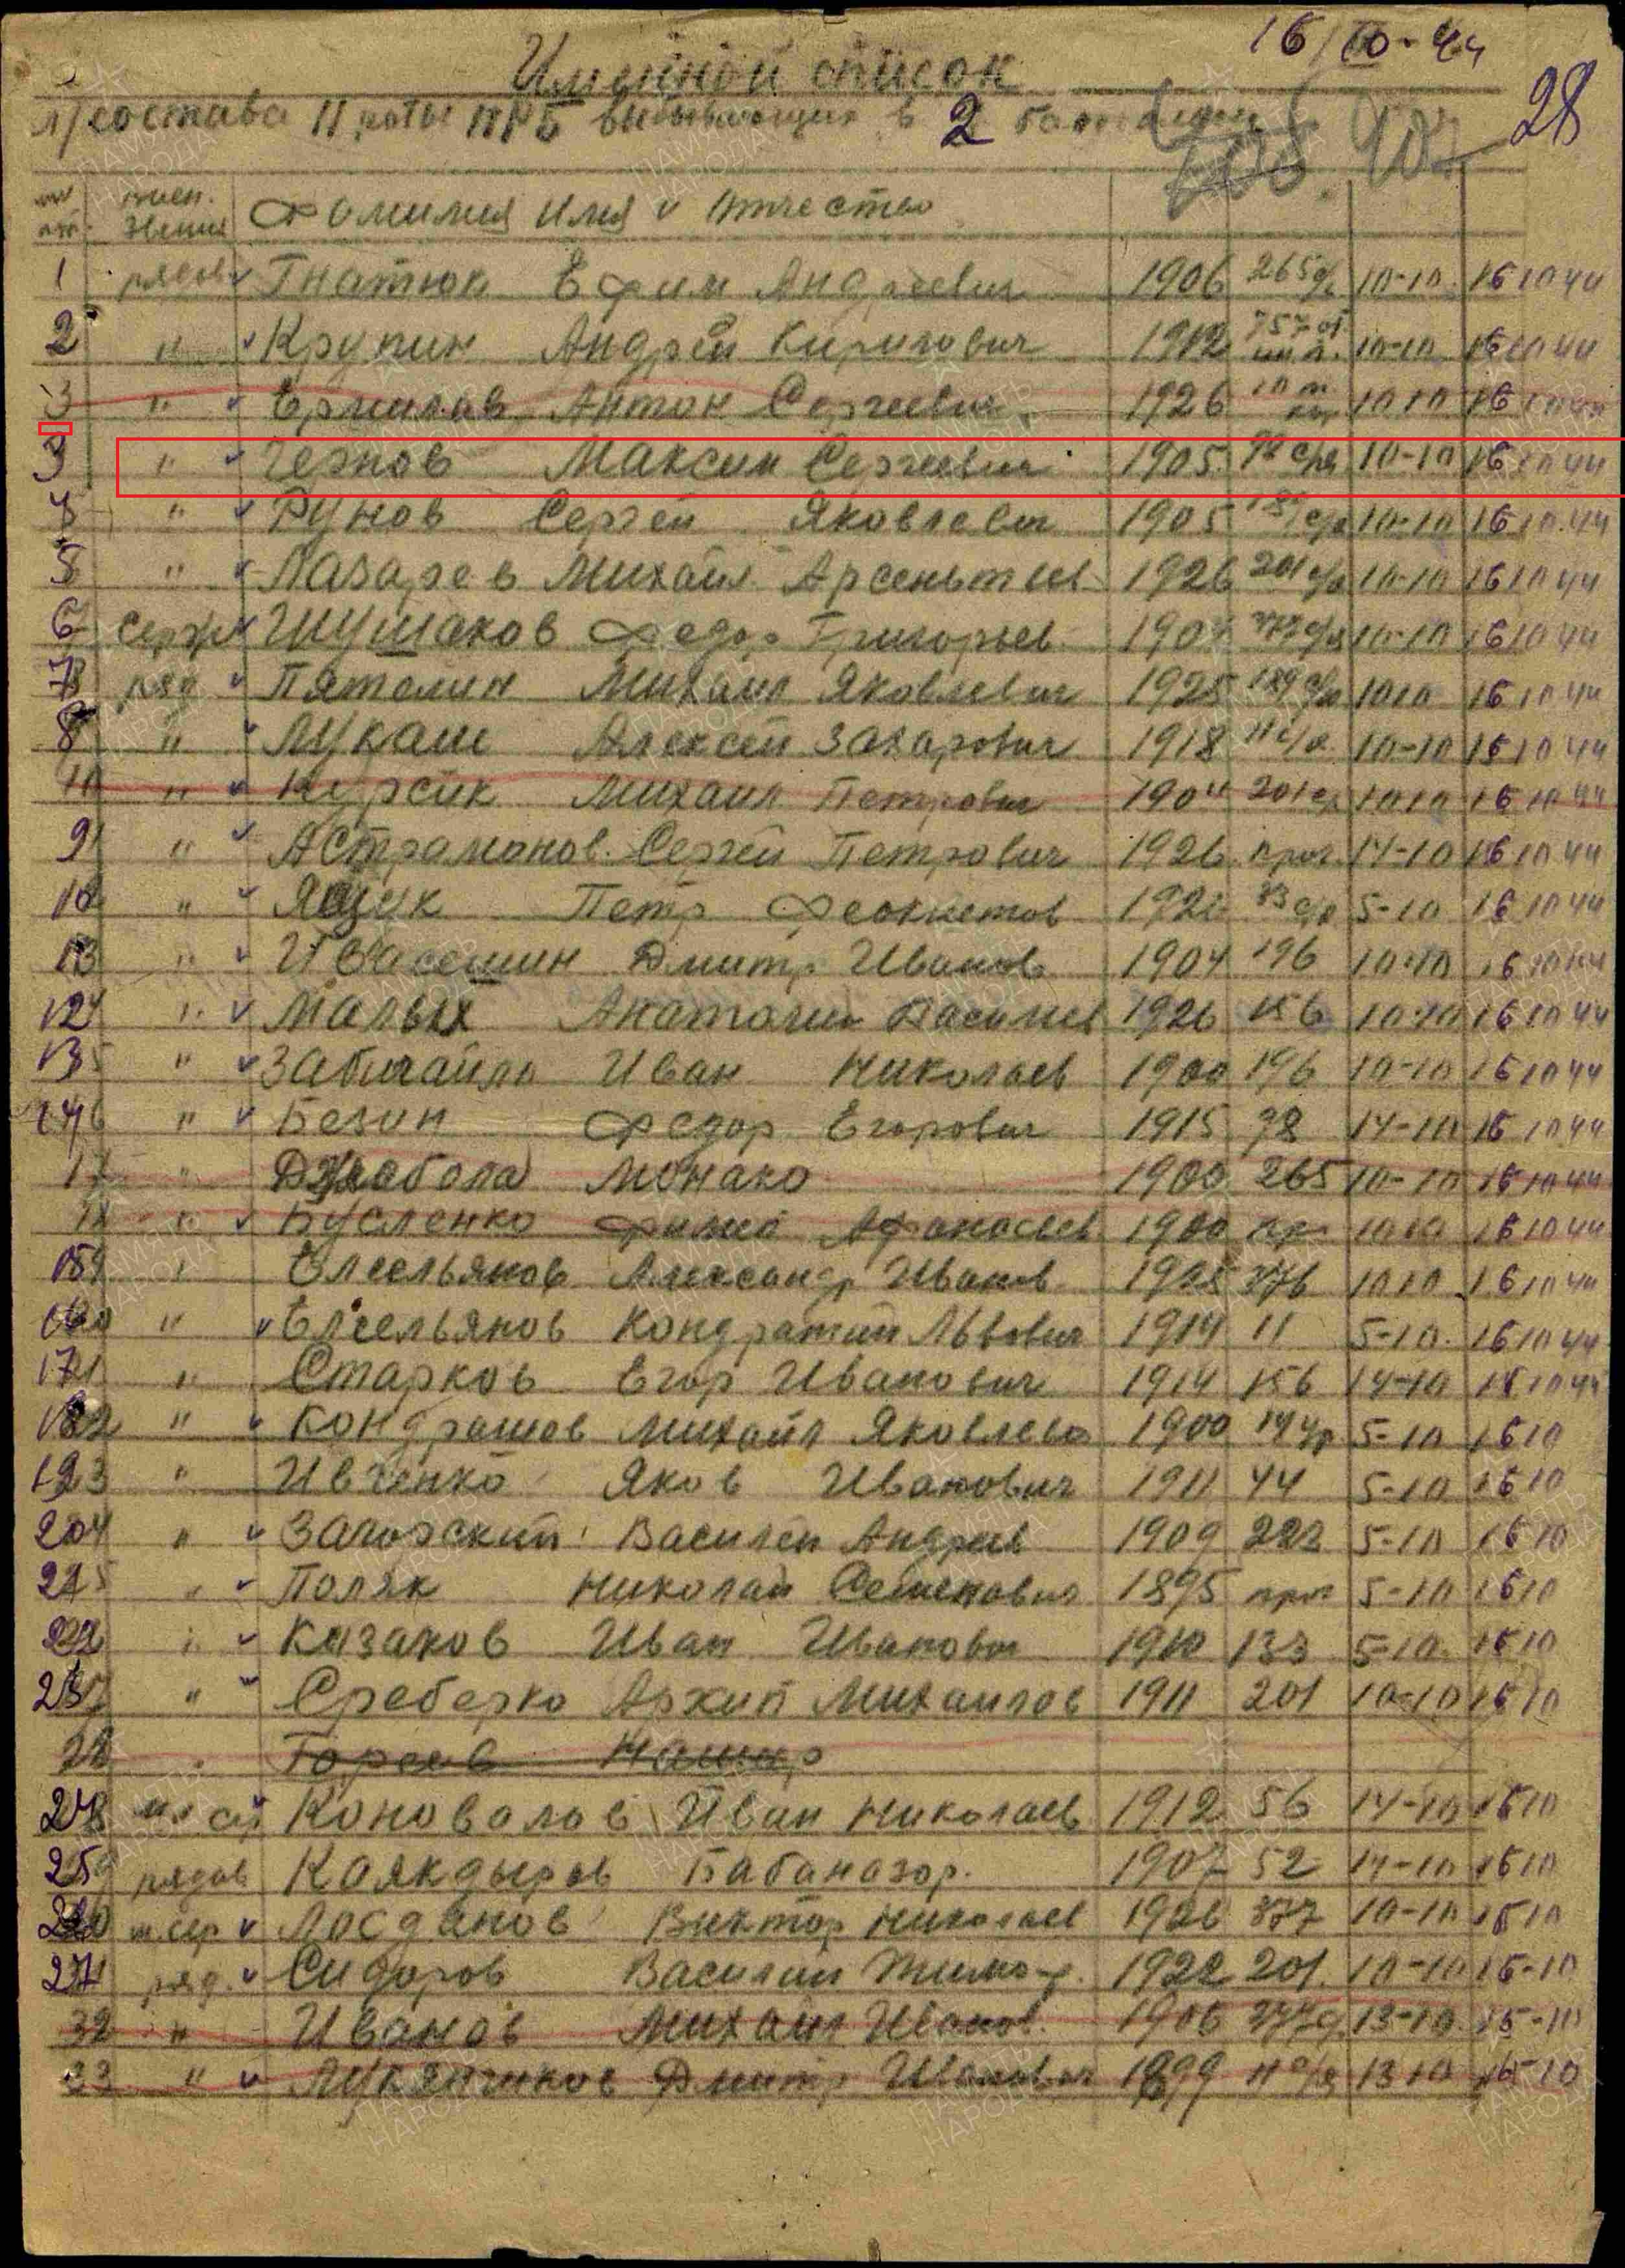 16/10-44
Именной список
28
л/состава 11 роты ПРБ выбывающих в 2 батальон
Фамилия имя и отчество
1 рядов Гнатюк Ефим Андреевич 1906 265 с/п 10-10 16 10 44
2 " Крупин Андрей Кирилович 1912 757 10-10 16 10 44
3 " Ермилов Антон Сергеевич 1926 10-10 16 10 44
3 " Чернов Максим Сергеевич 1905 98 с/п 10-10 16 10 44
4 " Рунов Сергей Яковлевич 1905 10-10 16 10 44
5 " Лазарев Михаил Арсентьев 1926 201 с/п 10-10 16 10 44
6 серж Шушаков Федор Григорьев 1907 377 с/п 10-10 16 10 44
7 ряд Пятелин Михаил Яковлевич 1925 189 с/п 10 10 16 10 44
8 " Лукаш Алексей Захарович 1918 11 с/п 10-10 16 10 44
" Курсик Михаил Петрович 1904 201 с/п 10 10 16 10 44
9 " Астрамонов Сергей Петрович 1926 14-10 16 10 44
10 " Ящук Петр Феоктистов 192 83 с/п 5-10 16 10 44
" Ивасешин Дмитр Иванов 1904 196 10-10 16 10 44
12 " Малых Анатолий Василев 1926 156 10-10 16 10 44
13 " Забигайло Иван Николаев 1900 196 10-10 16 10 44
14 " Безин Федор Егорович 1915 98 14-10 16 10 44
17 " Джабола Монако 1900 265 10-10 16 10 44
18 " Бусленко Афанасьев 1900 10 10 16 10 44
15 " Елесльянов Александр Иванов 1925 376 10 10 16 10 44
16 " Елесльянов Кондратий Львович 1914 11 5-10 16 10 44
17 " Старков Егор Иванович 1914 156 14-10 16 10 44
18 " Кондрашов Михаил Яковлев 1900 14 5-10 16 10
19 " Ивченко Яков Иванович 1911 44 5-10 16 10
20 " Загорский Василий Андреев 1909 222 5-10 16 10
21 " Поляк Николай Семенович 1895 5-10 16 10
22 " Казаков Иван Иванович 1910 133 5-10 16 10
23 " Среберко Архип Михайлов 1911 201 10-10 16 10
28 Гореев
24 мл с Коновалов Иван Николаев 1912 56 14-10 16 10
25 рядов Коякдыров Бабаназар 1907 52 14-10 16 10
Лосданов Виктор Николаев 1926 377 10-10 16 10
27 ряд. Сидоров Василий Тимоф. 1922 201 10-10 16-10
32 " Иванов Михаил Иванов. 1906 377 13-10 16-10
33 " Лукянчиков Дмитр Иванович 1899 11 с/п 13 10 16-10